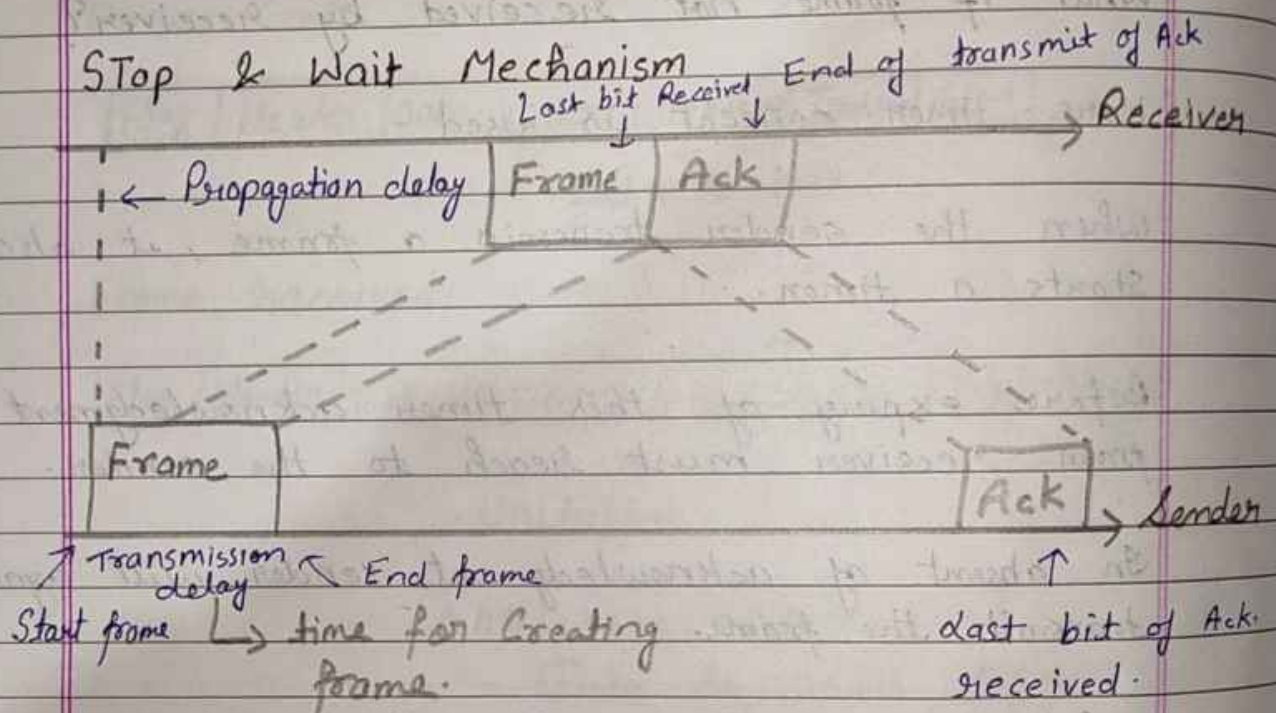 STop & Wait Mechanism
Last bit Received
End of transmit of Ack
Receiver
← Propagation delay
Frame
Ack
Frame
Ack
Sender
Transmission delay
End frame
Start frame
time for Creating
frame.
Last bit of Ack.
received.